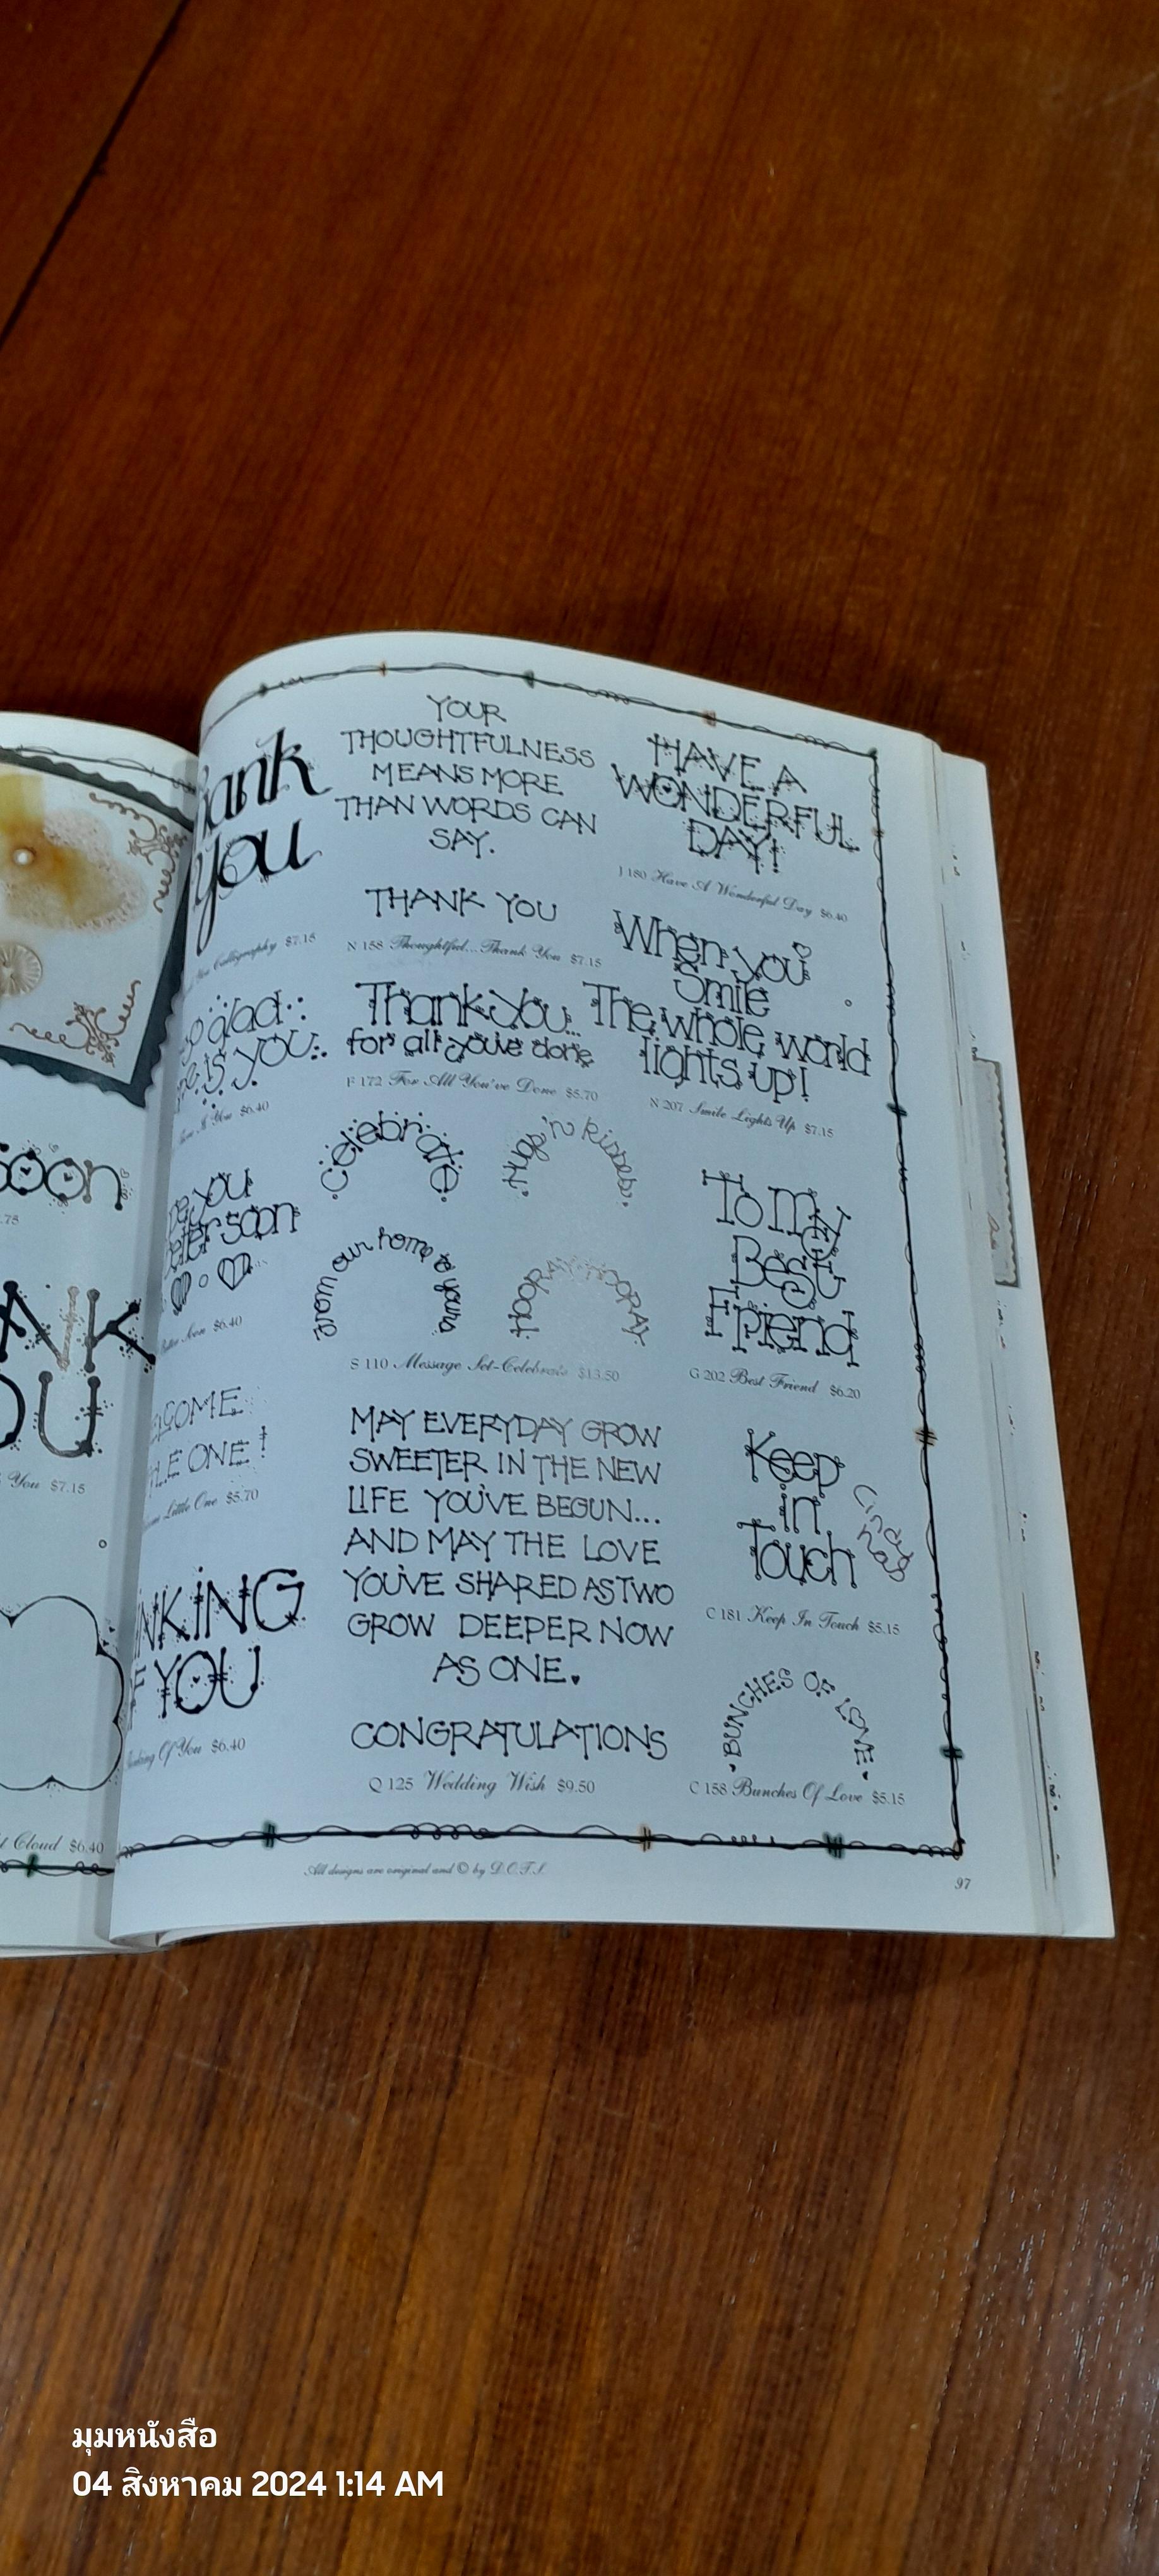 soon
.75
NK
OU
You $7.15
Cloud $6.40
ank
you
Calligraphy $7.15
so glad
is you
It You $6.40
you
better soon
Better Soon $6.40
COME
LE ONE!
Little One $5.70
NKING
F YOU
Thinking Of You $6.40
YOUR
THOUGHTFULNESS
MEANS MORE
THAN WORDS CAN
SAY.
THANK YOU
N 158 Thoughtful... Thank You $7.15
Thank You...
for all you've done
F 172 For All You've Done $5.70
celebrate
Hugs 'n kisses
from our home to yours
HOORAY HOORAY
S 110 Message Set-Celebrate $13.50
MAY EVERYDAY GROW
SWEETER IN THE NEW
LIFE YOU'VE BEGUN...
AND MAY THE LOVE
YOU'VE SHARED AS TWO
GROW DEEPER NOW
AS ONE.
CONGRATULATIONS
Q 125 Wedding Wish $9.50
HAVE A
WONDERFUL
DAY!
J 180 Have A Wonderful Day $6.40
When you
Smile
The whole world
lights up!
N 207 Smile Lights Up $7.15
To my
Best
Friend
G 202 Best Friend $6.20
Keep
in
Touch
C 181 Keep In Touch $5.15
BUNCHES OF LOVE
C 158 Bunches Of Love $5.15
All designs are original and © by D.O.T.S.
97
มุมหนังสือ
04 สิงหาคม 2024 1:14 AM